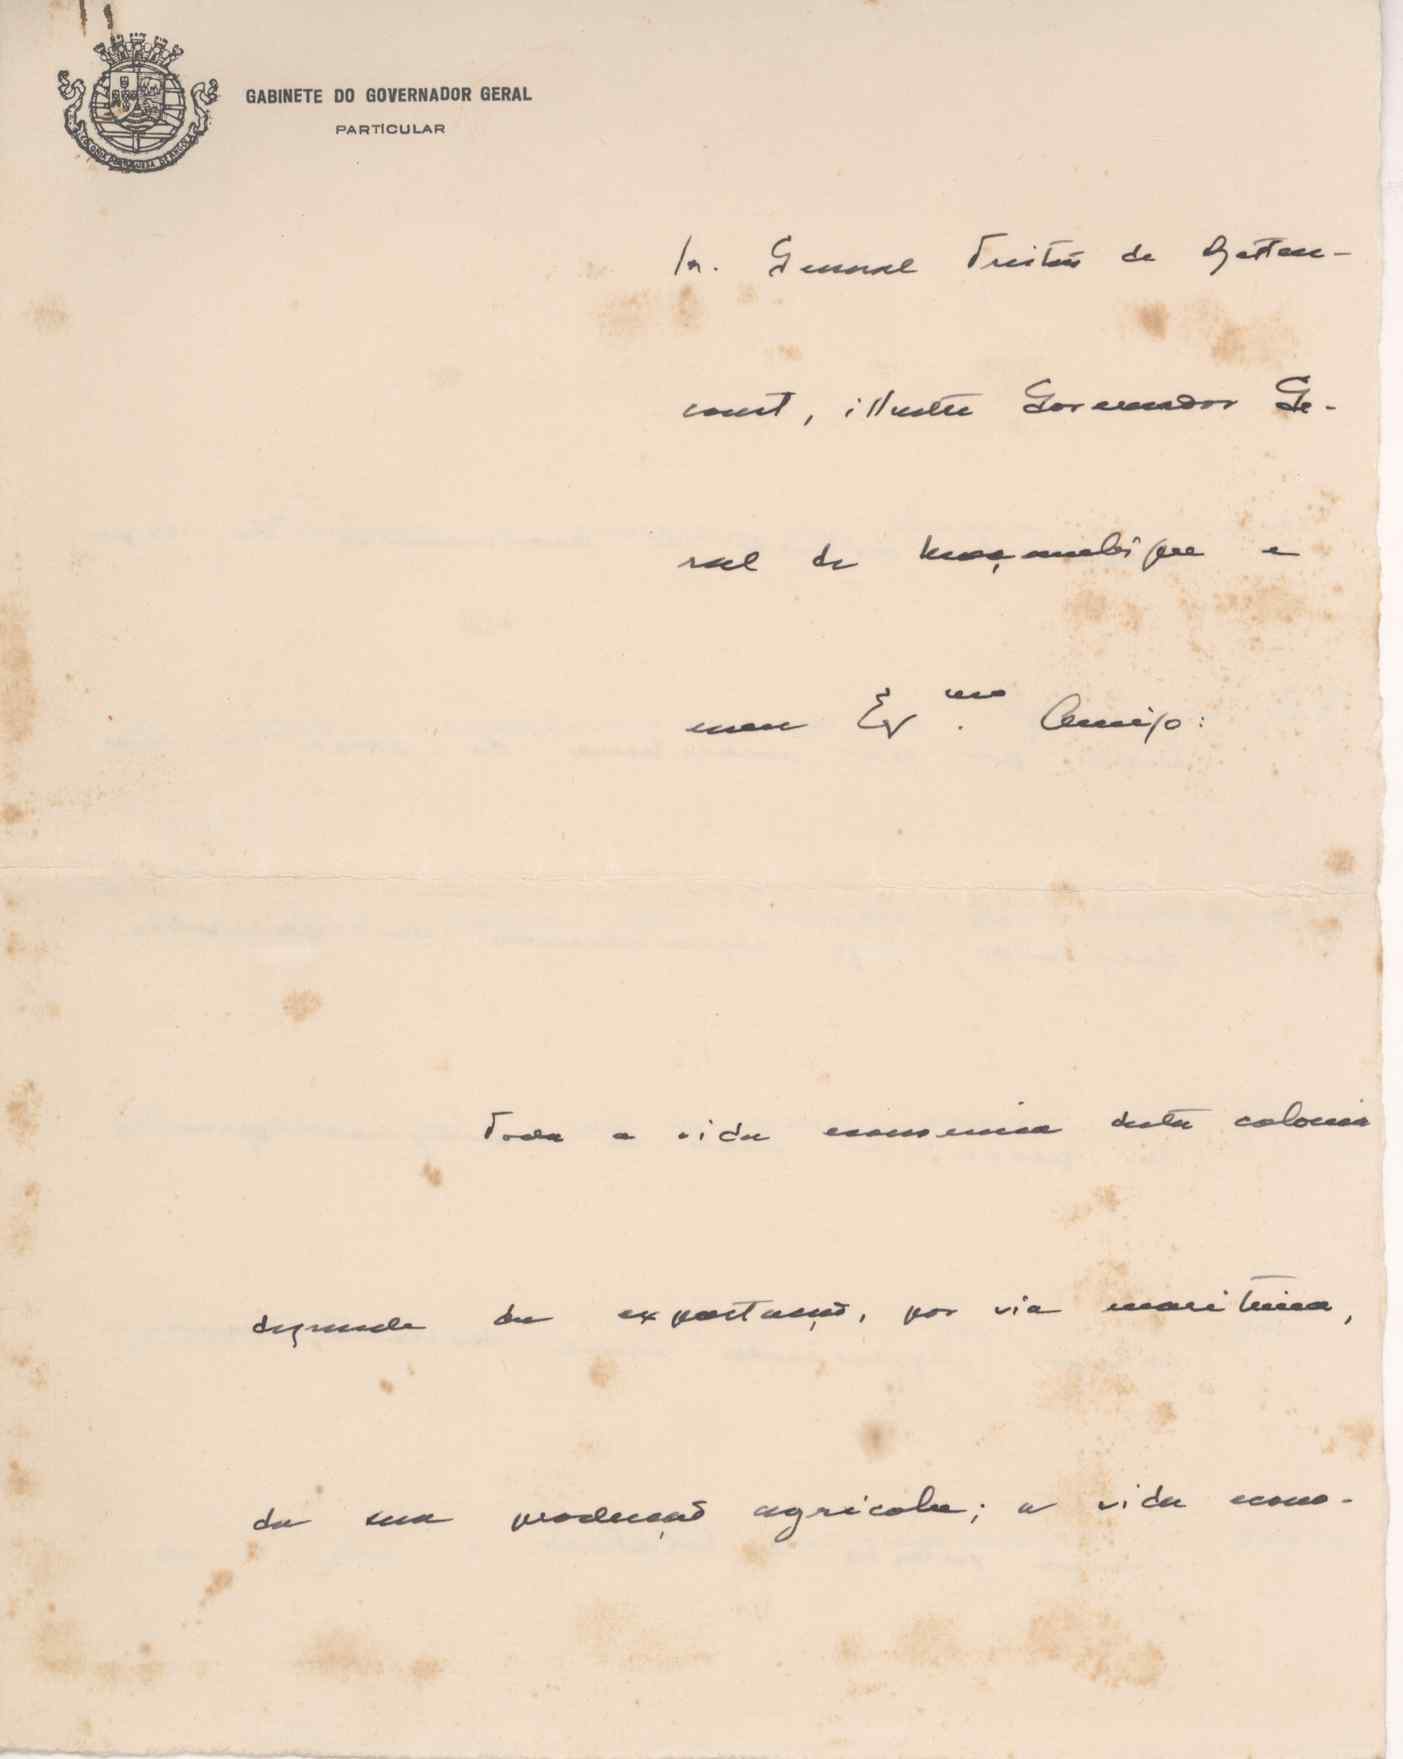 GABINETE DO GOVERNADOR GERAL
PARTICULAR
COLONIA PORTUGUESA DE ANGOLA
Sr. General Tristão de Betten-
court, illustre Governador Ge-
ral de Moçambique e
meu Exmo. Amigo:
Toda a vida economica desta colonia
depende da exportação, por via maritima,
da sua producção agricola; a vida econo-